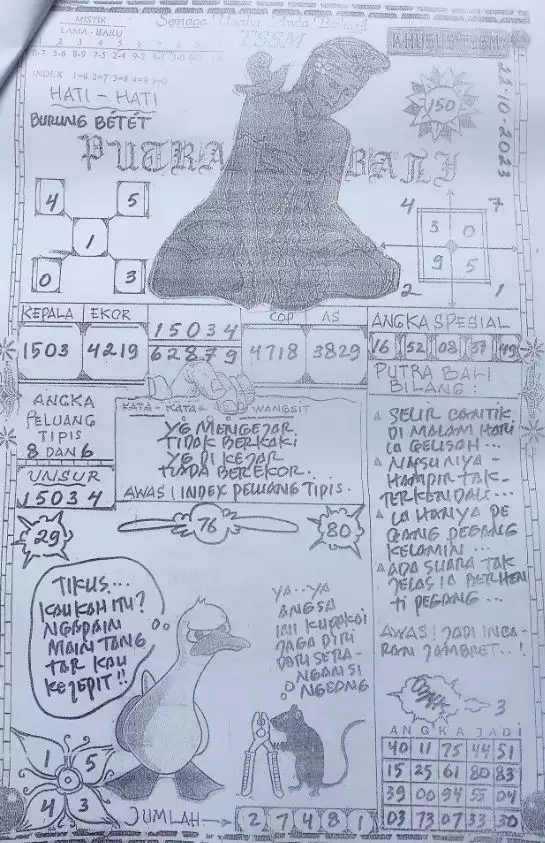 Semoga Usaha Anda Berhasil
TSSM
MISTIK
LAMA - BARU
2 3 4 5 6
0-7 5-6 8-9 7-5 2-4 9-2
INDEX 1=6 2=7 3=8 4=9 5=0
HATI - HATI
BURUNG BETET
PUTRA BALI
150
22-10-2023
4 5
1
0 3
4 7
3 0
9 5
2 1
KEPALA EKOR
1503 4219
15034
62879
COP AS
4718 3829
ANGKA SPESIAL
16 52 08 37 49
ANGKA
PELUANG
TIPIS
8 DAN 6
UNSUR
15034
KATA - KATA WANGSIT
YG MENGEJAR
TIDAK BERKAKI
YG DI KEJAR
TIADA BEREKOR.
AWAS! INDEX PELUANG TIPIS.
PUTRA BALI
BILANG:
SELIR CANTIK
DI MALAM HARI
IA GELISAH...
NAFSUNIYA -
HAMPIR TAK-
TERKENDALI...
IA HANYA PE
GANG PEGANG
KELAMIN...
ADA SUARA TAK
JELAS IA BERHEN
TI PEGANG...
AWAS! JADI INCA-
RAN JAMBRET..!
29
76
80
TIKUS....
KAUKAH ITU?
NGAPAIN
MAIN TANG
TAR KAU
KEJEPIT!!
YA..YA
ANGSA
INI KUPAKAI
JAGA DIRI
DARI SERA-
NGAN SI
NGEONG
3
ANGKA JADI
40 11 75 44 51
15 25 61 80 83
39 00 94 55 04
03 73 07 33 30
1 5
4 3
JUMLAH
2 7 4 8 1